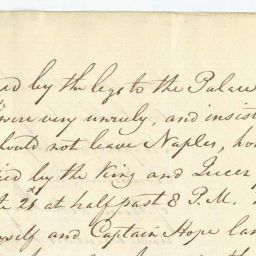 by the legs to the Palace
were very unruly, and insist
should not leave Naples, ho
by the King and Queen
21st at half past 8 P.M.
myself and Captain Hope lan